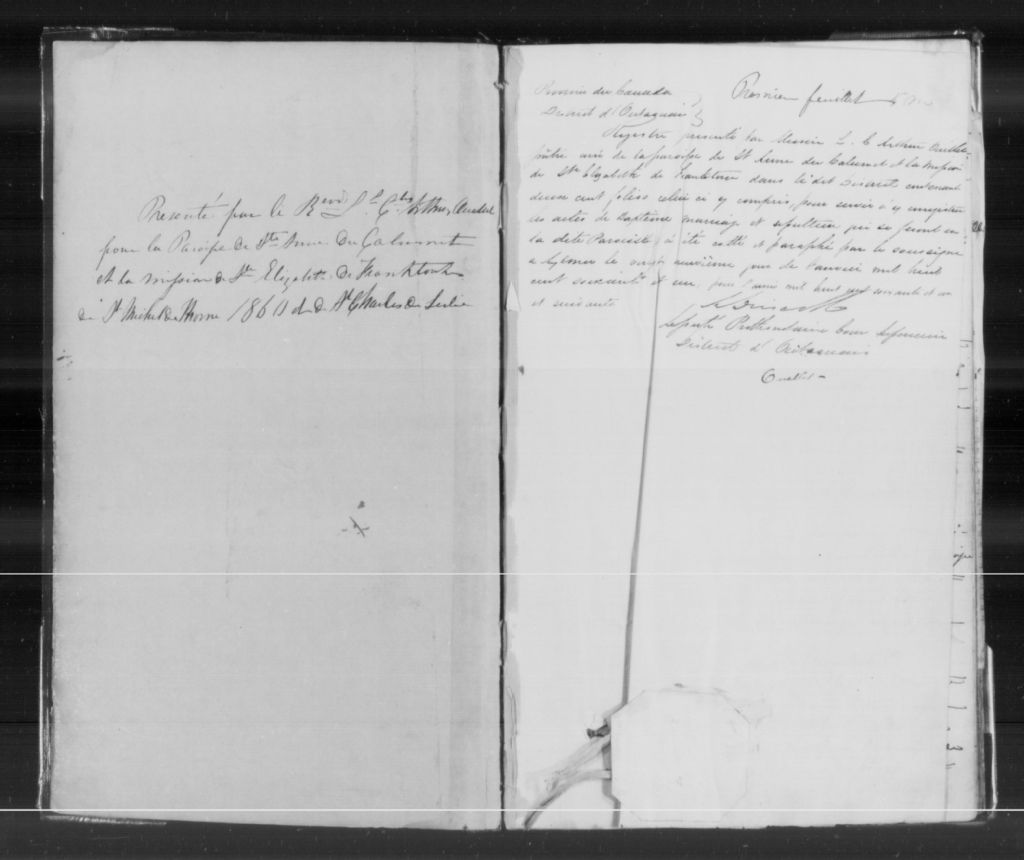 Presenté par le Revd Ls Chs Arthur Ouellet
pour la Paroisse de Ste Anne du Calumet
et la mission de Ste Elizabeth de Franktown
de St Michel de Thorne 1861 et de St Charles de Leslie
Province du Canada
District d'Outaouais
Premier feuillet
Registre presenté par Messire L. C. Arthur Ouellet
prêtre curé de la paroisse de St Anne du Calumet et la mission
de Ste Elizabeth de Franktown dans le dit District contenant
deux cent folios celui ci y compris, pour servir à y enregistrer
les actes de Baptême mariage et sépulture qui se feront en
la dite Paroisse, a été cotté et paraphé par le soussigné
a Aylmer le vingt neuvième jour de Janvier mil huit
cent soixante et un, pour l'année mil huit cent soixante et un
et suivante
Député Prothonotaire Cour Supérieure
District d'Outaouais
Ouellet